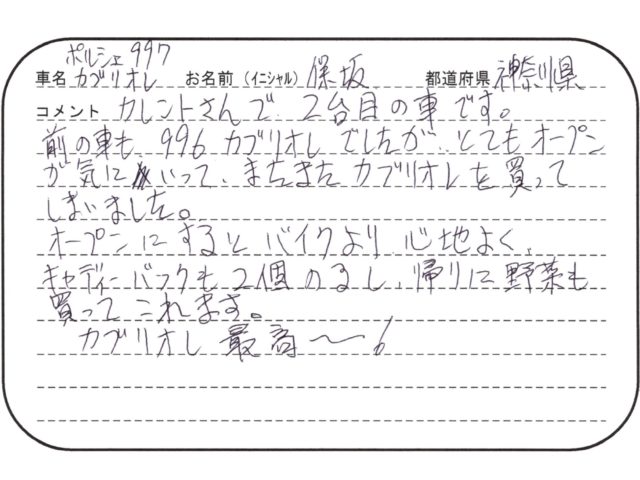 ポルシェ 997
車名 カブリオレ お名前（イニシャル） 保坂 都道府県 神奈川県
コメント カレントさんで、2台目の車です。
前の車も、996 カブリオレでしたが、とてもオープン
が気にいって、またまたカブリオレを買って
しまいました。
オープンにするとバイクより、心地よく、
キャディーバックも2個のるし、帰りに野菜も
買ってこれます。
カブリオレ 最高～!